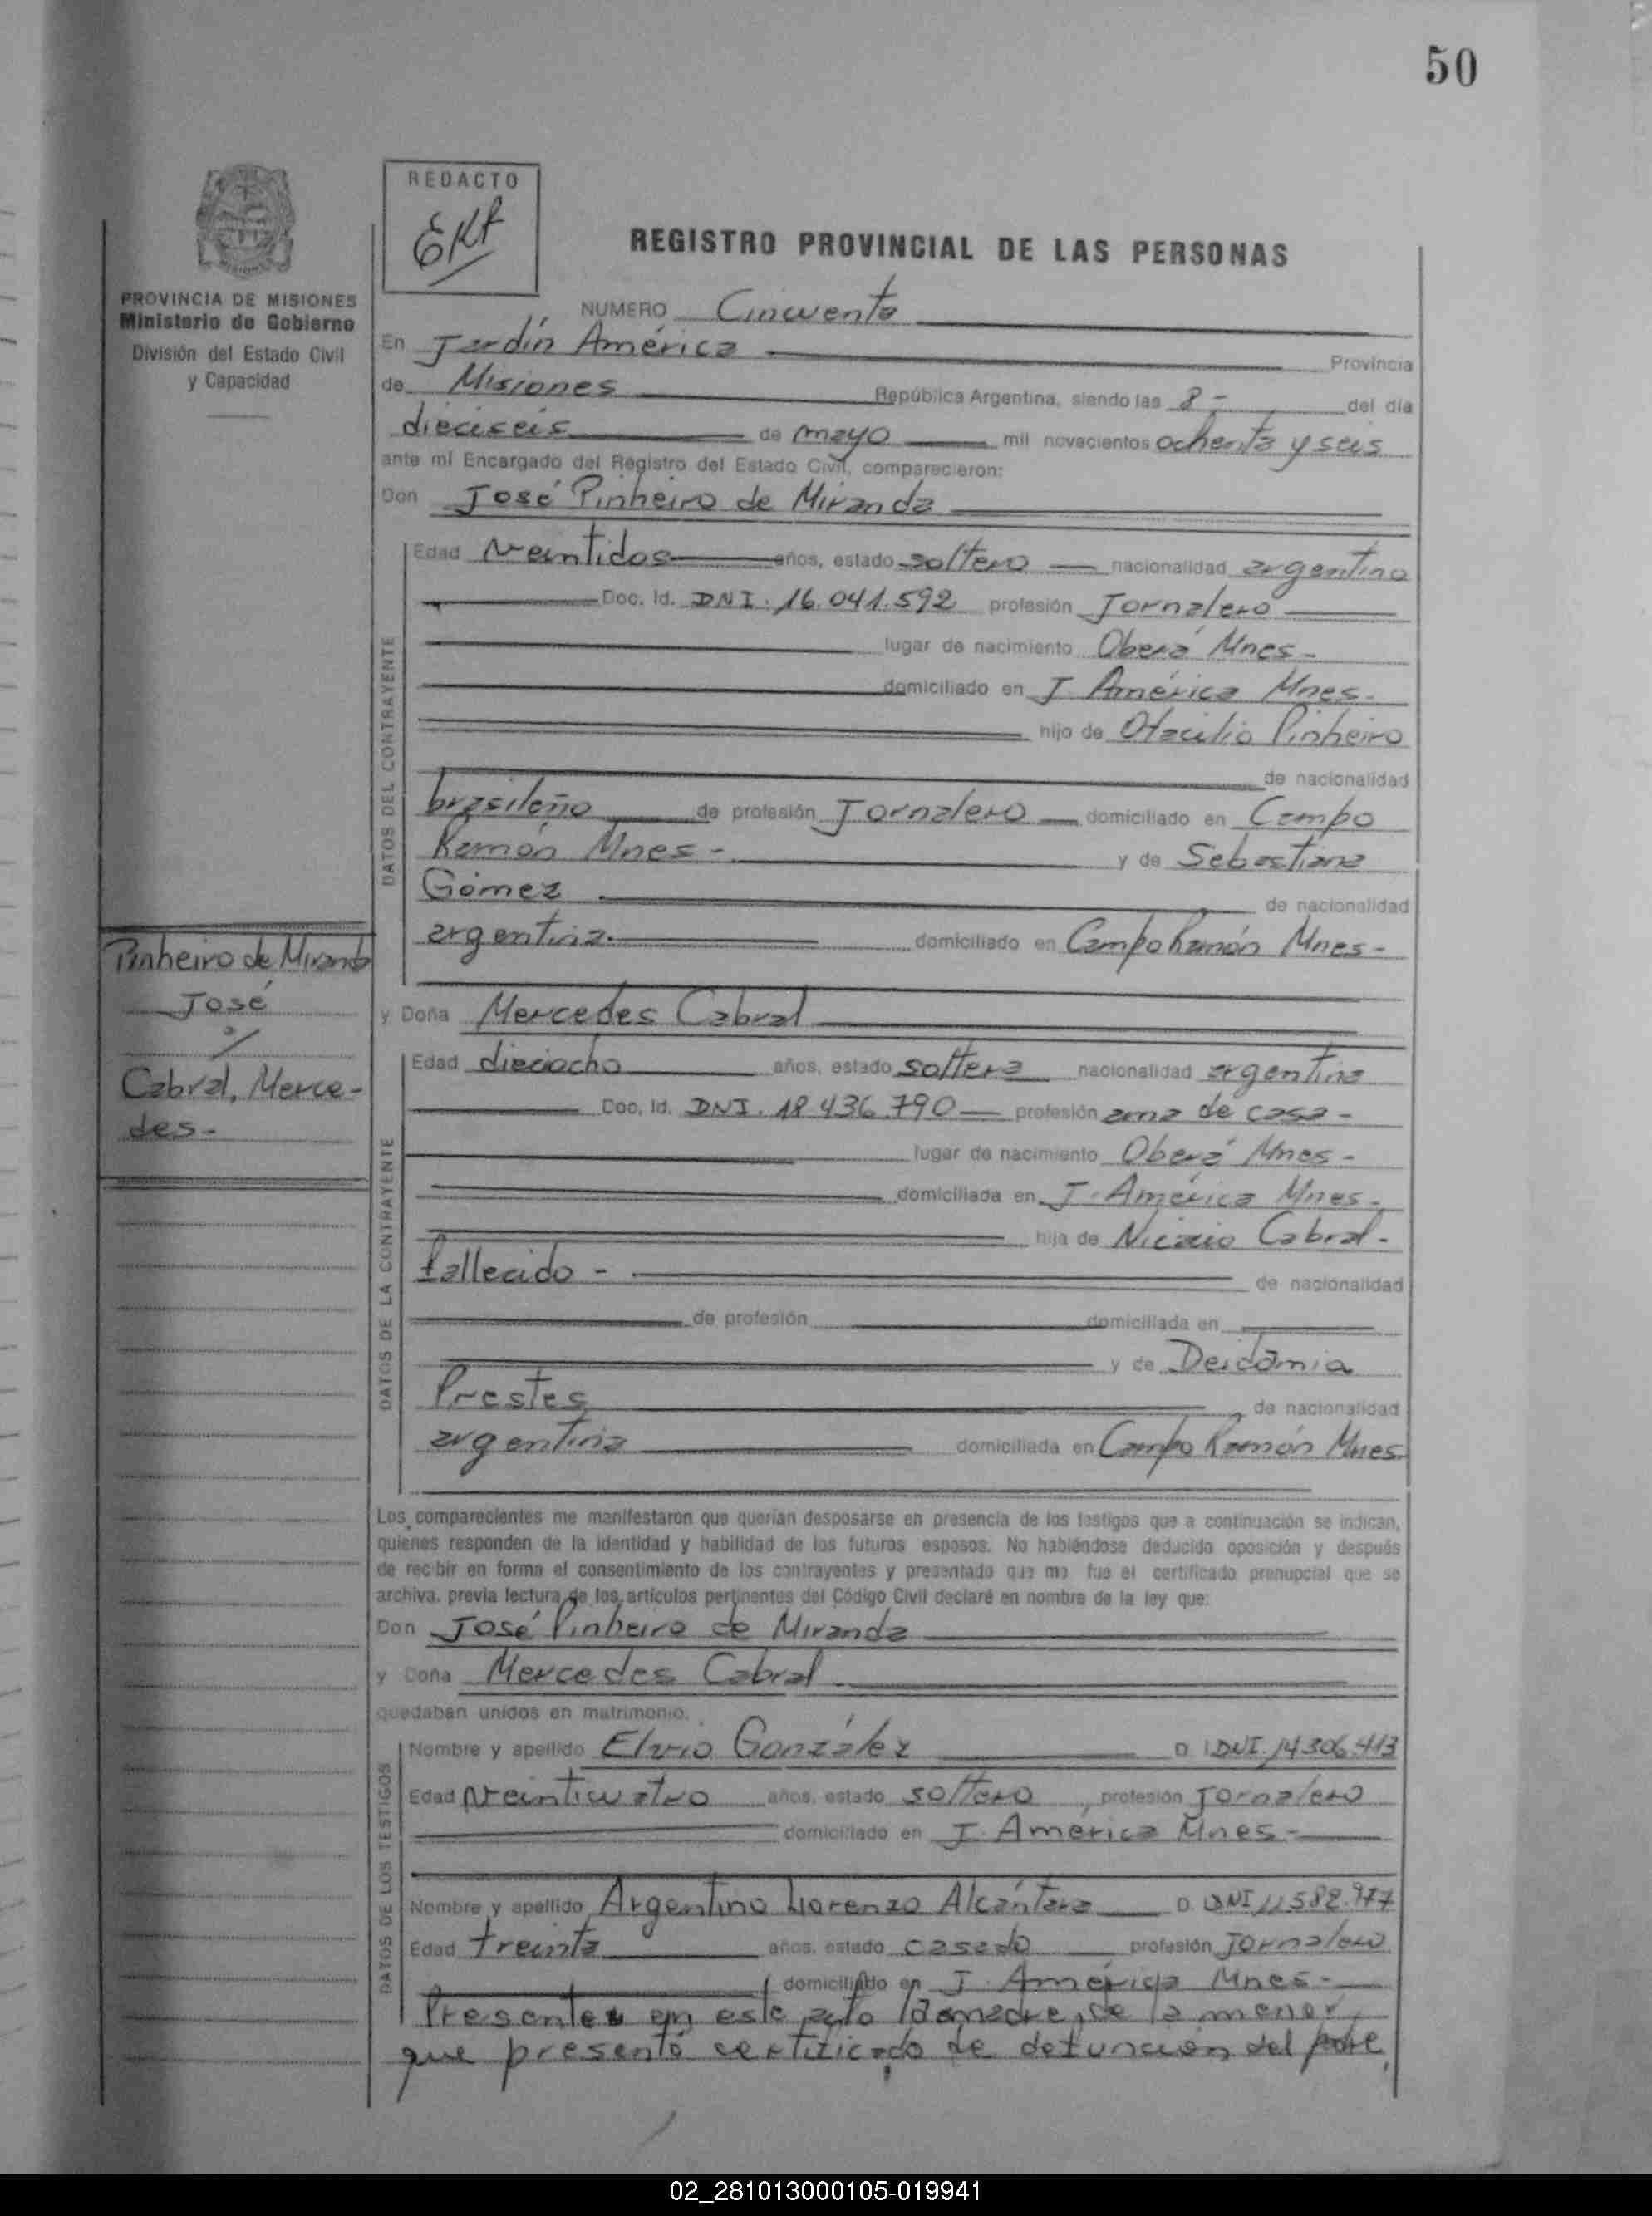 50
REDACTO
REGISTRO PROVINCIAL DE LAS PERSONAS
PROVINCIA DE MISIONES
Ministerio de Gobierno
División del Estado Civil
y Capacidad
NUMERO Cincuenta
En Jardín América Provincia
de Misiones República Argentina, siendo las 8- del día
dieciseis de mayo mil novecientos ochenta y seis
ante mi Encargado del Registro del Estado Civil, comparecieron:
Don José Pinheiro de Miranda
DATOS DEL CONTRAYENTE
Edad veintidos años, estado soltero nacionalidad argentina
Doc. Id. DNI. 16.041.592 profesión Jornalero
lugar de nacimiento Oberá Mnes-
domiciliado en J América Mnes-
hijo de Otacilio Pinheiro
de nacionalidad
brasileño de profesión Jornalero domiciliado en Campo
Ramón Mnes- y de Sebastiana
Gómez de nacionalidad
argentina domiciliado en Campo Ramón Mnes-
Pinheiro de Miranda
José
c/
Cabral, Merce-
des-
y Doña Mercedes Cabral
DATOS DE LA CONTRAYENTE
Edad dieciocho años, estado soltera nacionalidad argentina
Doc. Id. DNI. 18.436.790 profesión ama de casa-
lugar de nacimiento Oberá Mnes-
domiciliada en J. América Mnes-
hija de Nicasio Cabral-
fallecido - de nacionalidad
de profesión domiciliada en
y de Deidamia
Prestes de nacionalidad
argentina domiciliada en Campo Ramón Mnes
Los comparecientes me manifestaron que querían desposarse en presencia de los testigos que a continuación se indican,
quienes responden de la identidad y habilidad de los futuros esposos. No habiéndose deducido oposición y después
de recibir en forma el consentimiento de los contrayentes y presentado que me fue el certificado prenupcial que se
archiva, previa lectura de los artículos pertinentes del Código Civil declaré en nombre de la ley que:
Don José Pinheiro de Miranda
y Doña Mercedes Cabral
quedaban unidos en matrimonio.
DATOS DE LOS TESTIGOS
Nombre y apellido Elvio González D I DNI. 14.306.413
Edad veinticuatro años, estado soltero, profesión Jornalero
domiciliado en J. America Mnes-
Nombre y apellido Argentino Lorenzo Alcántara D. DNI 11.582.977
Edad treinta años, estado casado profesión Jornalero
domiciliado en J. América Mnes-
Presente en este acto la madre de la menor,
que presentó certificado de defunción del padre,
02_281013000105-019941